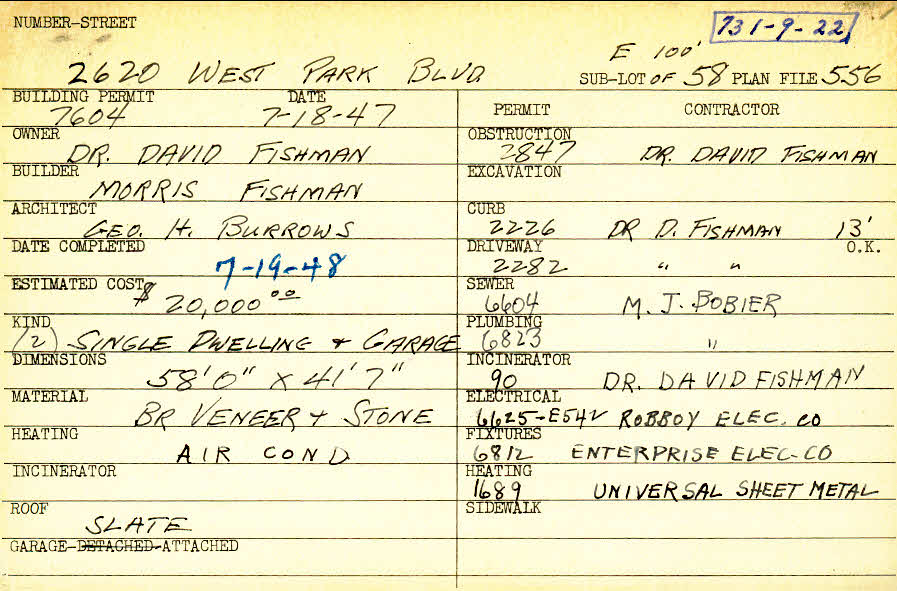 NUMBER-STREET
731-9-22
2620 WEST PARK BLVD
E 100'
SUB-LOT OF 58 PLAN FILE 556
BUILDING PERMIT DATE
7604 7-18-47
OWNER
DR. DAVID FISHMAN
BUILDER
MORRIS FISHMAN
ARCHITECT
GEO. H. BURROWS
DATE COMPLETED
7-19-48
ESTIMATED COST
$ 20,000.00
KIND
(2) SINGLE DWELLING & GARAGE
DIMENSIONS
58'0" X 41'7"
MATERIAL
BR VENEER & STONE
HEATING
AIR COND
INCINERATOR
ROOF
SLATE
GARAGE-DETACHED-ATTACHED
PERMIT CONTRACTOR
OBSTRUCTION
2847 DR. DAVID FISHMAN
EXCAVATION
CURB
2226 DR D. FISHMAN 13'
DRIVEWAY O.K.
2282 " "
SEWER
6604 M. J. BOBIER
PLUMBING
6823 "
INCINERATOR
90 DR. DAVID FISHMAN
ELECTRICAL
6625-E542 ROBBOY ELEC. CO
FIXTURES
6812 ENTERPRISE ELEC-CO
HEATING
1689 UNIVERSAL SHEET METAL
SIDEWALK